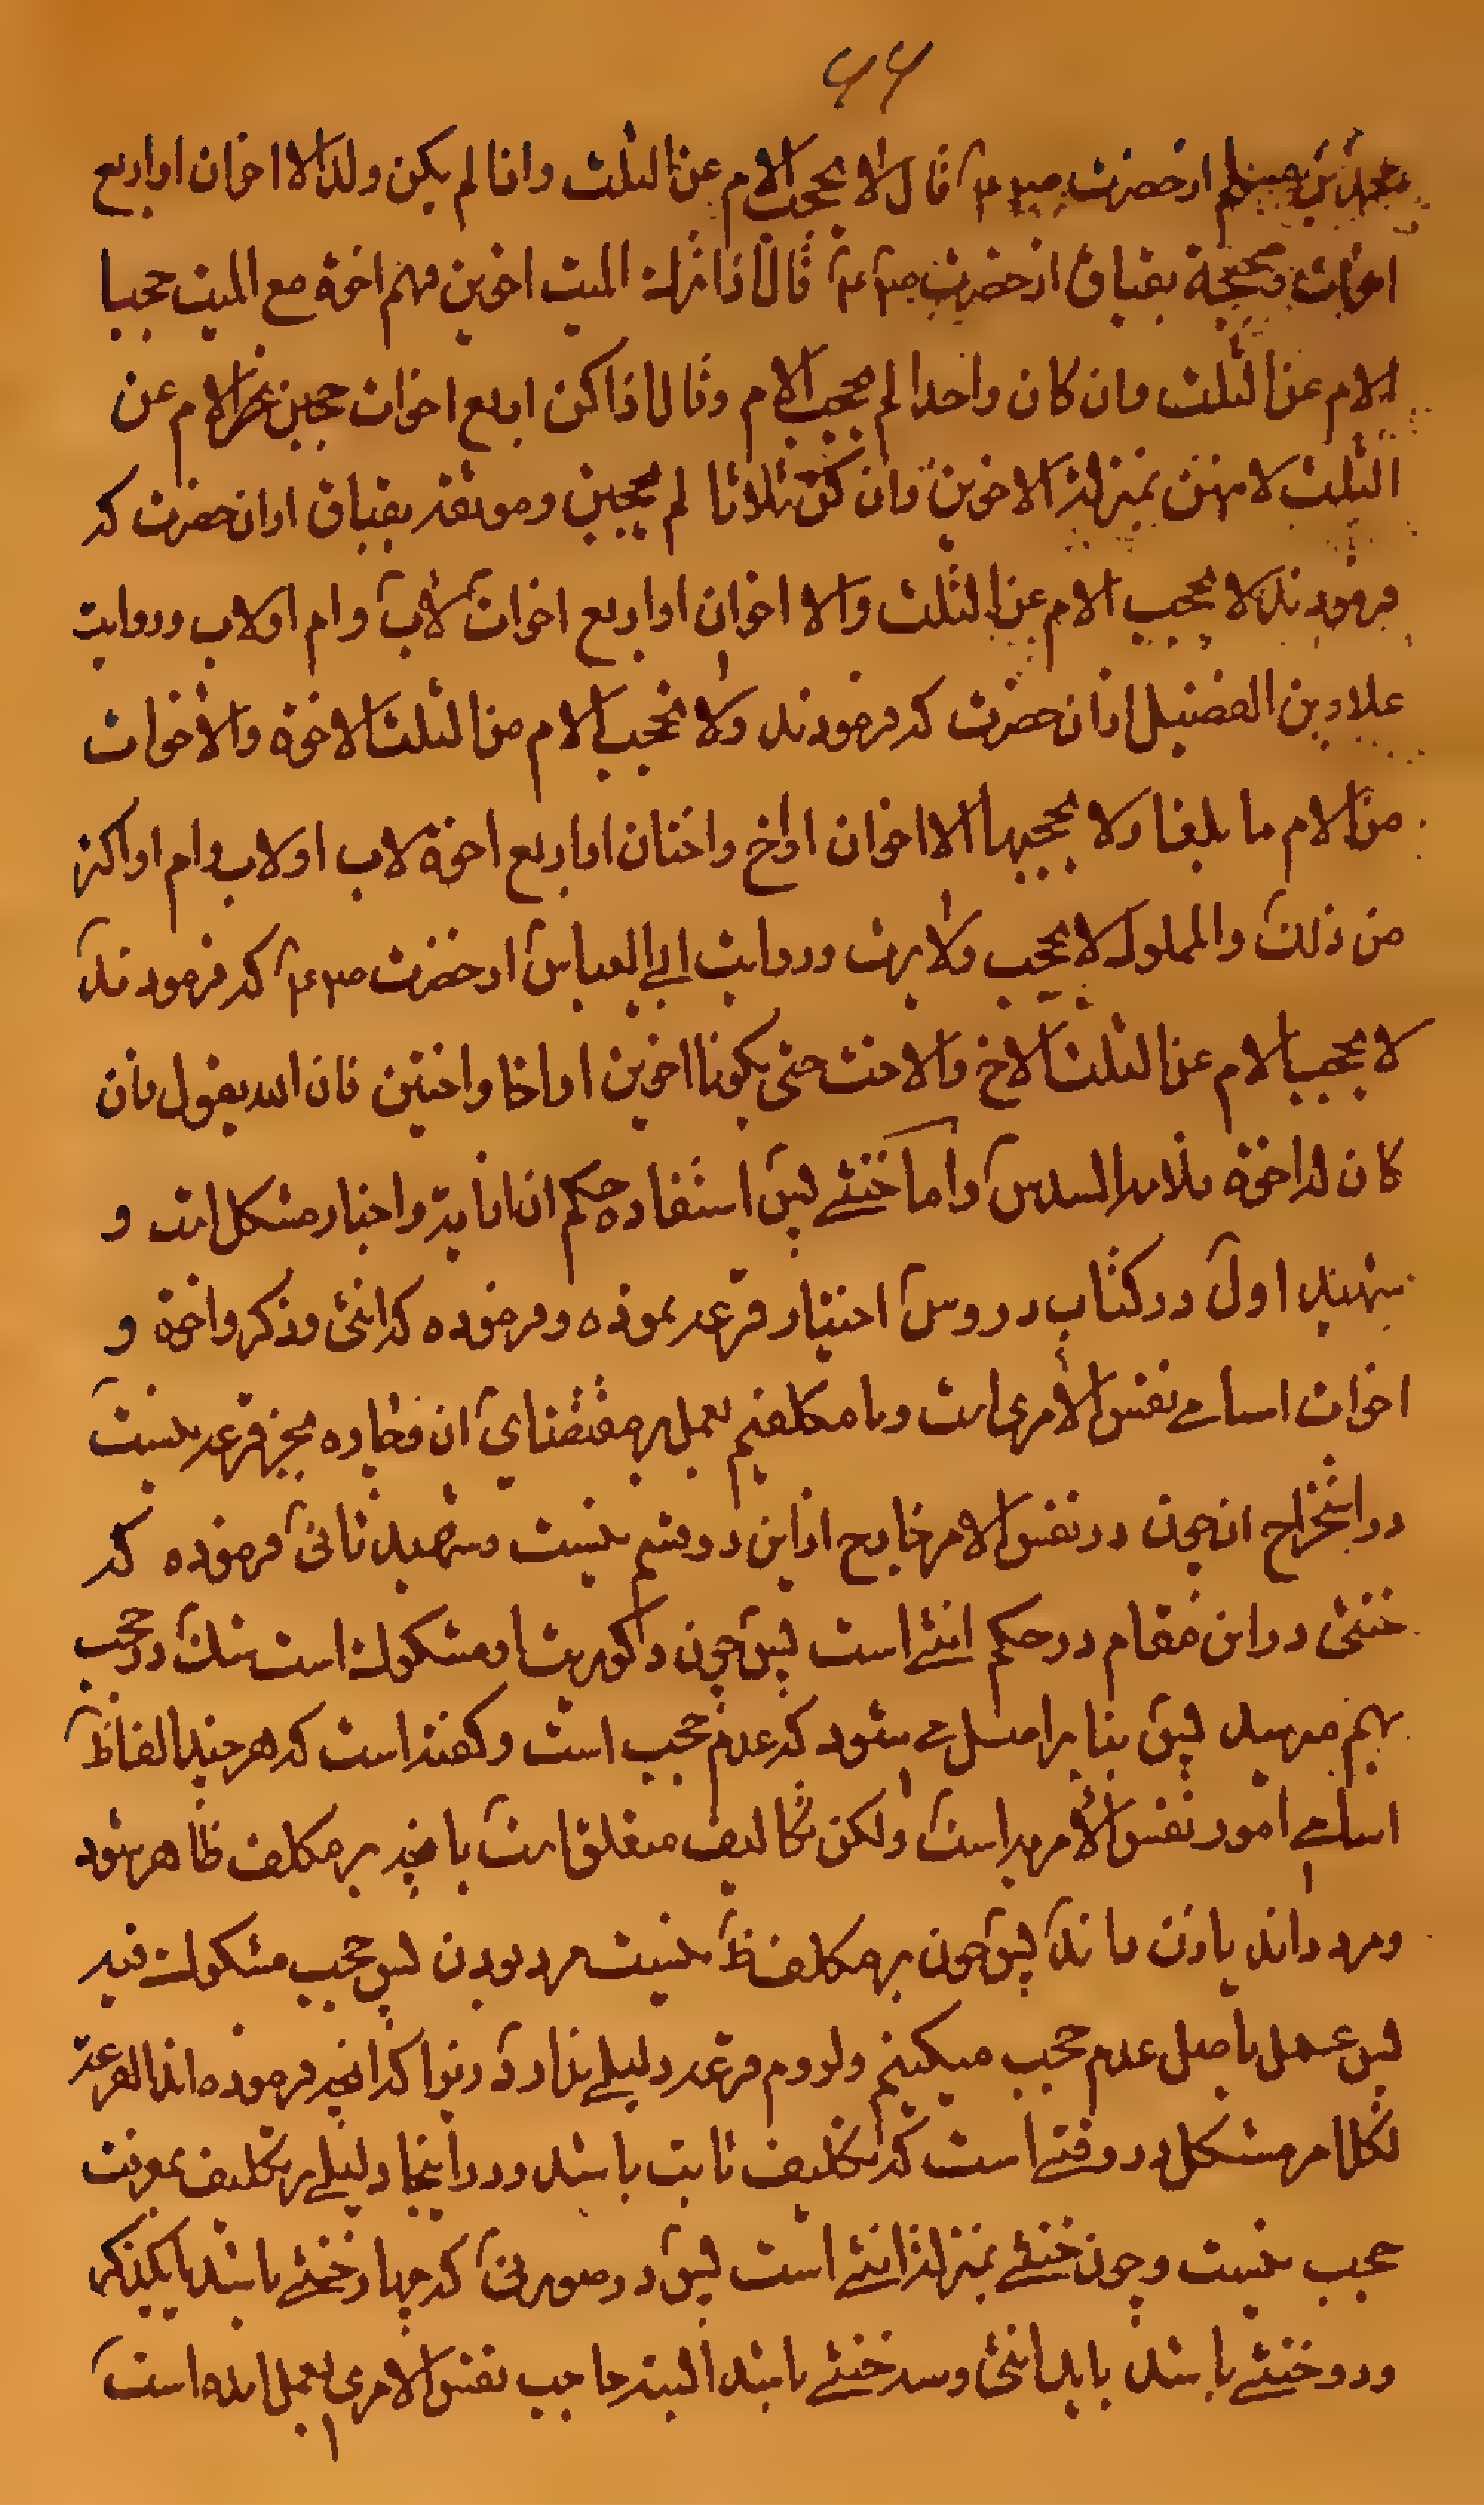 ۶۶
محمد بن مسلم از حضرت ص ع م قال لا یحجب الام عن الثلث وانا لم یکن ولد الا اخوان او اربع
اخوات وصحیحة بقباق از حضرت ص ع م قال اذا ترك المیت اخوین فهم اخوة مع المیت حجبا
الام عن الثلث وان کان واحدا لم یحجب الام وقال اذا کن اربع اخوات حجبن الام عن
الثلث لانهن بمنزلة الاخوین وان کن ثلاثا لم یحجبن وموثقه بقباق از ان حضرت که
فرمودند لا یحجب الام عن الثلث والا اخوان او اربع اخوات لاب وام او لاب وروایت
علاء بن الفضیل از ان حضرت که فرمودند ولا یحجب الام من الثلث الاخوة والاخوات
من الام ما بلغا ولا یحجبها الا اخوان او اخ واختان او اربع اخوة لاب او لاب وام او اکثر
من ذلك والمملوك لا یحجب ولا یرث وروایت ابی العباس از حضرت ص ع م که فرمودند
لا یحجب الام عن الثلث الاخ والاخت حتی یکونا اخوین او اخا واختین فان الله یقول فان
کان له اخوة فلامه السدس واما خنثی پس استفاده حکم ان از ایه واخبار مشکل است و
شهید اول در کتاب دروس اختیار قرعه نموده وفرموده که انثی وذکر واخوة و
اخوات اسامی نفس الامری است وما مکلفیم بعمل بر مقتضای ان وچاره بجز قرعه نیست
در استخراج ان چون در نفس الامر خارج از این دو قسم نیست وشهید ثانی فرموده که
خنثی در این مقام در حکم انثی است پس چون ذکوریت او مشکوك است شك در حجب
بهم میرسد پس بنا بر اصل می شود که عدم حجب است وگفته است که هر چند الفاظ
اسامی امور نفس الامریه است ولکن تکالیف متعلق است بانچه بر مکلف ظاهر شود
ومرد داند یا زن داند پس چون بر مکلف ظ نیست مرد بودن پس حجب مشکوك نیز
پس عمل باصل عدم حجب میکنیم ولزوم قرعه دلیلی ندارد زیرا که انچه فرموده اند القرعة
لکل امر مشکل در وقتی است که تکلیف ثابت باشد ودر اینجا دلیلی بر تکلیف بمعرفت
حجب نیست وچون خنثی بمنزله انثی است پس در صورتی که چهار خنثی باشد یا یکذکر
ودو خنثی باشد یا یك انثی وسه خنثی باشد البته حاجب نفس الامری بعمل امده است